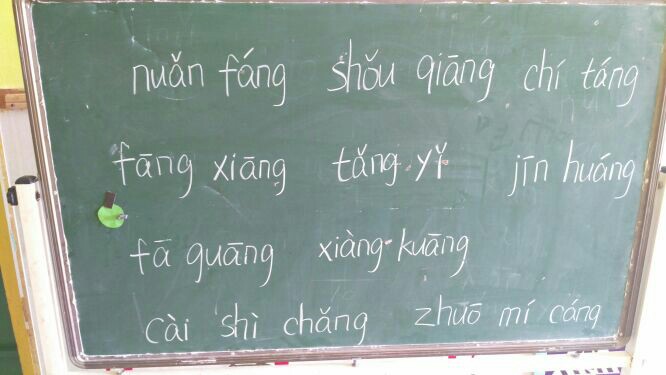 nuǎn fáng shǒu qiāng chí táng
fāng xiāng tǎng yǐ jīn huáng
fā guāng xiàng kuāng
cài shì chǎng zhuō mí cáng